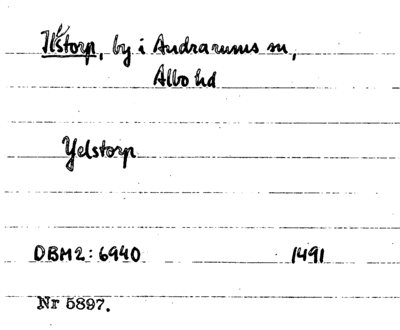 Ilstorp, by i Andrarums sn,
Albo hd
Yelstorp
DBM2: 6940 1491
Nr 5897.